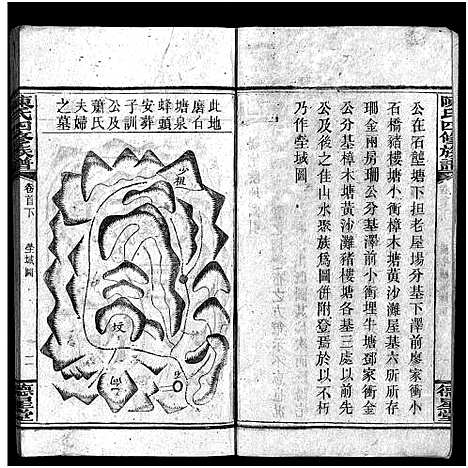 陳氏四修族譜
德星堂
公在石䃮塘下担老屋場分基下澤前廖家衝小
石橋豬樓塘小衡樟木塘黃沙灘屋基六所所存
珊金兩房珊公分基澤前小衝埋牛塘鄧家衝金
公分基樟木塘黃沙灘豬樓塘各基三處以前先
公及後之佳山水聚族爲圖併附登焉於以不朽
乃作塋域圖
此地磨石
塘泉蜂頭
安葬子訓
公及蕭氏
夫婦之墓
少祖
坟
陳氏四修族譜
卷首下
塋域圖
一
德星堂